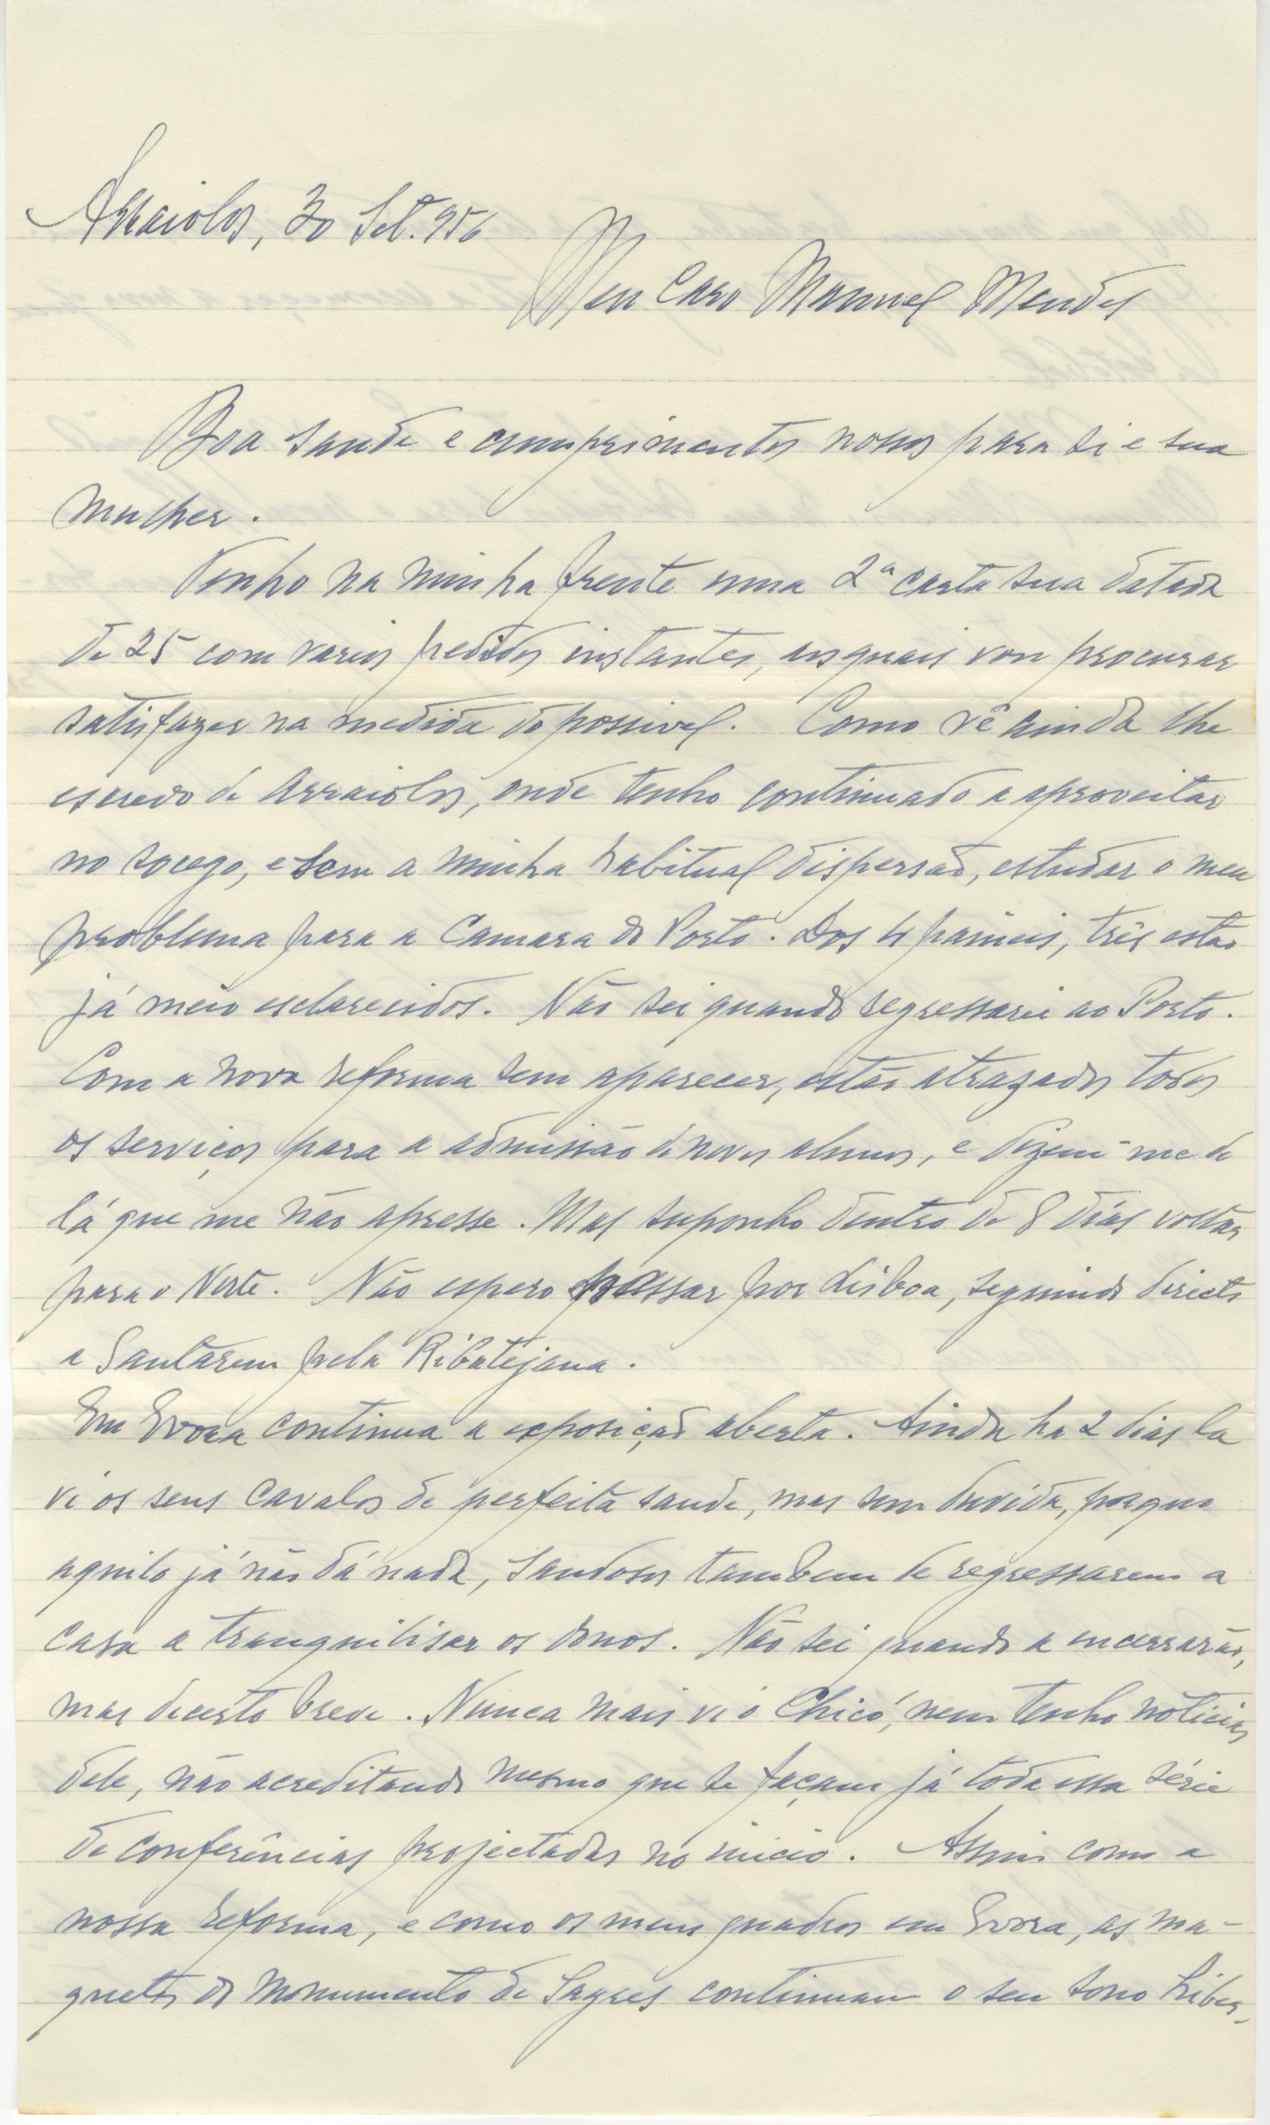 Arraiolos, 30 Set.º 956
Meu Caro Manuel Mendes
Boa saude e cumprimentos nossos para si e sua
mulher.
Tenho na minha frente uma 2ª carta sua datada
de 25 com varios pedidos instantes, aos quais vou procurar
satisfazer na medida do possivel. Como vê ainda lhe
escrevo de Arraiolos, onde tenho continuado a aproveitar
no socego, e sem a minha habitual dispersão, estudar o meu
problema para a Camara do Porto. Dos 4 paineis, três estão
já meio esclarecidos. Não sei quando regressarei ao Porto.
Com a nova reforma sem aparecer, estão atrazados todos
os serviços para a admissão de novos alunos, e dizem-me de
lá que me não apresse. Mas suponho dentro de 8 dias voltar
para o Norte. Não espero passar por Lisboa, seguindo directo
a Santarem pela Ribatejana.
Em Evora continua a exposição aberta. Ainda ha 2 dias la
vi os seus cavalos de perfeita saude, mas sem duvida, porque
aquilo já não dá nada, saudosos tambem de regressarem a
casa a tranquilisar os donos. Não sei quando a encerrarão,
mas decerto breve. Nunca mais vi o Chicó, nem tenho noticias
dele, não acreditando mesmo que se façam já toda essa série
de conferências projectadas no inicio. Assim como a
nossa reforma, e como os meus quadros em Evora, as ma-
quetes do Monumento de Sagres continuam o seu sono hiber-